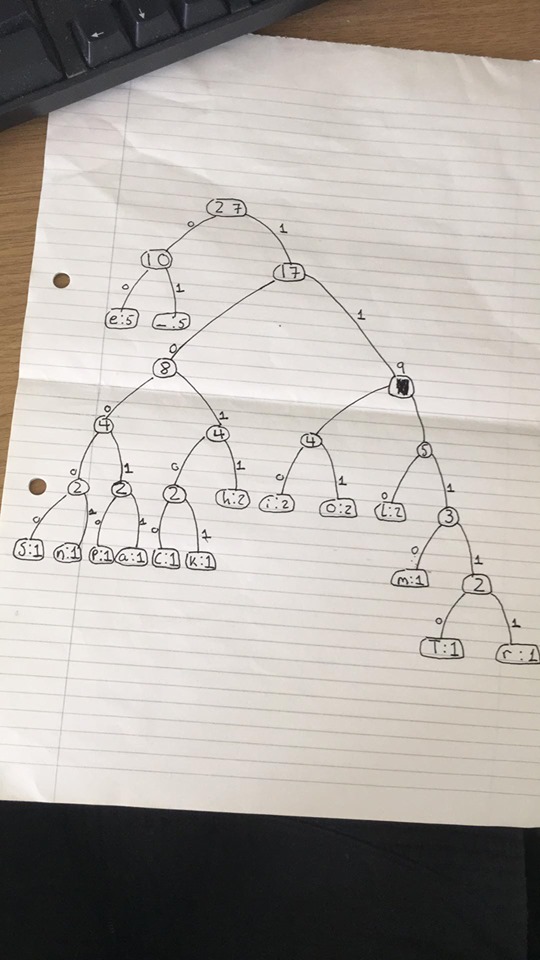 27
0 1
10
17
0 1 1
e:5 _:5
0 9
8
0 1
4 4 4 5
0 1 0 1 0 1 0 1
2 2 2 h:2 i:2 o:2 L:2 3
0 1 0 1 0 1 0 1
S:1 n:1 P:1 a:1 C:1 K:1 m:1 2
0 1
T:1 r:1